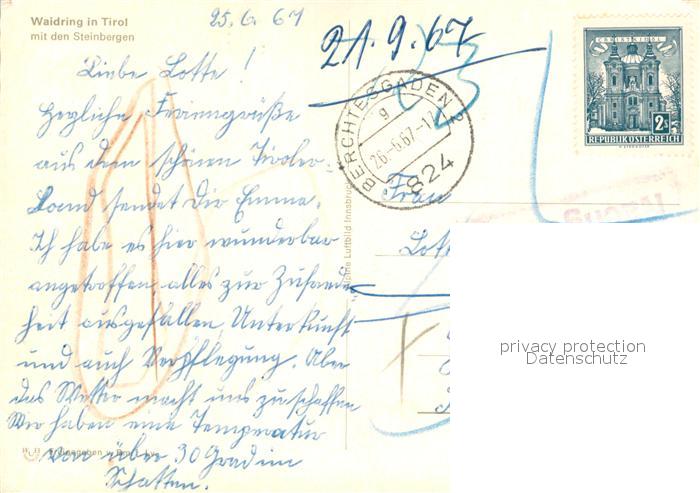 Waidring in Tirol
mit den Steinbergen
25.6.67
21.9.67
Liebe Lotte!
Herzliche Feriengrüße
aus dem schönen Tiroler-
Land sendet Dir Emma.
Ich habe es hier wunderbar
angetroffen, alles zur Zufrieden
heit ausgefallen, Unterkunft
und auch Verpflegung. Aber
das Wetter macht uns zu schaffen
Wir haben eine Temperatur
von über 30 Grad im
Schatten.
BERCHTESGADEN 2
g
26.-6.67-17
824
CHRISTKINDL
2S
REPUBLIK ÖSTERREICH
Frau
Lotte
privacy protection
Datenschutz